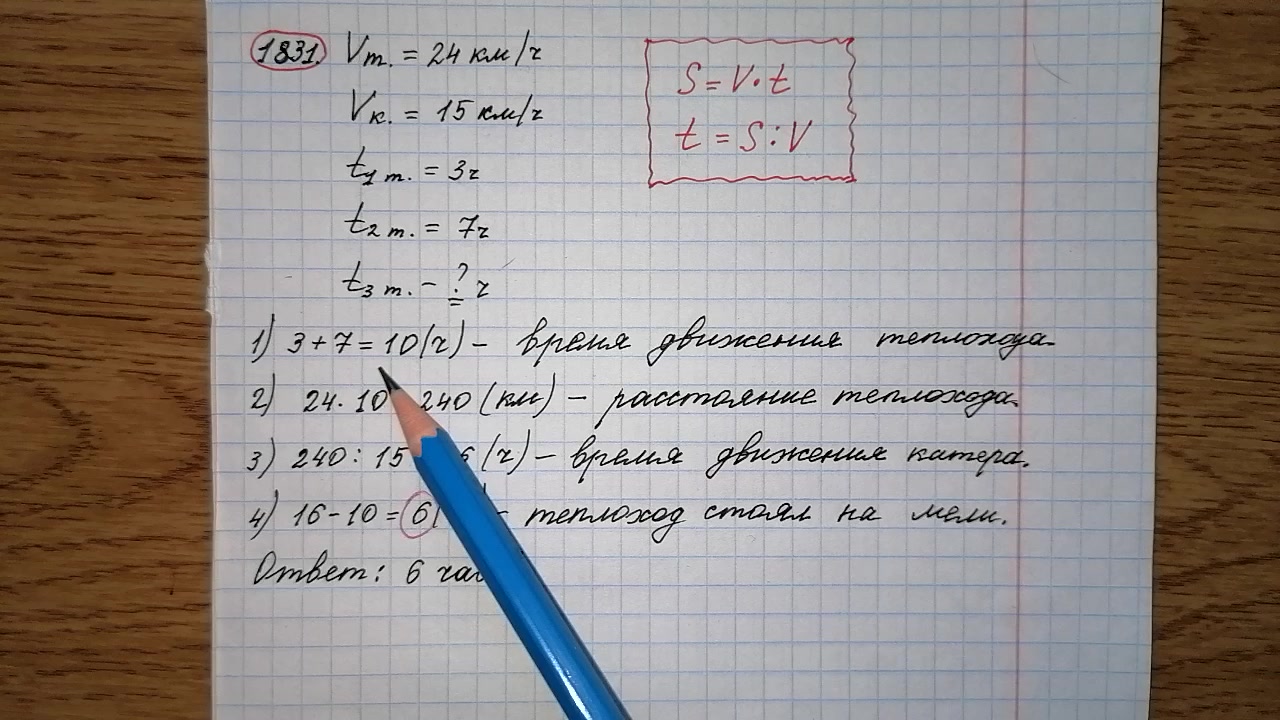 1831. Vт. = 24 км/ч
Vк. = 15 км/ч
t1 т. = 3ч
t2 т. = 7ч
t3 т. - ? ч
S = V · t
t = S : V
1) 3 + 7 = 10 (ч) - время движения теплохода.
2) 24 · 10 240 (км) - расстояние теплохода.
3) 240 : 15 6 (ч) - время движения катера.
4) 16 - 10 = 6 ( - теплоход стоял на мели.
Ответ: 6